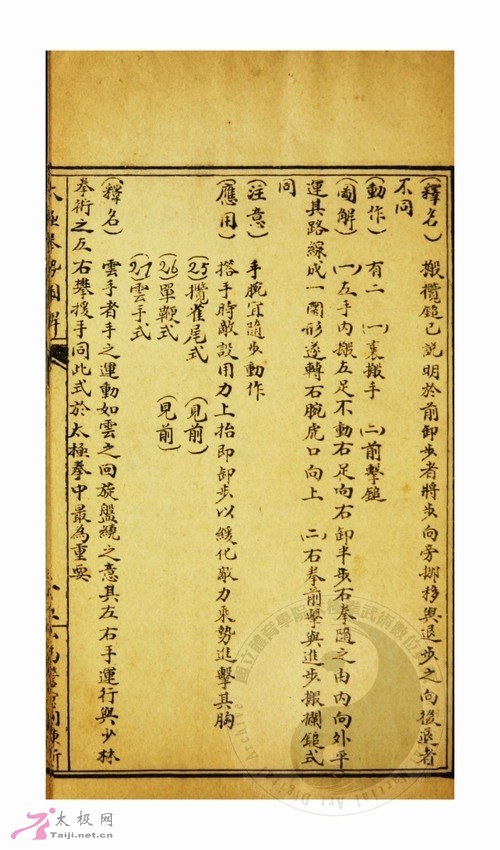 (釋名) 搬攬鎚已說明於前卸步者將步向旁挪移與退步之向後退者
不同
(動作) 有二 (一)裏搬手 (二)前擊鎚
(圖解) (一)左手內搬左足不動右足向右卸半步右拳隨之由內向外平
運其路線成一圈形遂轉右腕虎口向上 (二)右拳前擊與進步搬攔鎚式
同
(注意) 手腕宜隨步動作
(應用) 搭手時敵設用力上抬即卸步以緩化敵力乘勢進擊其胸
(25)攬雀尾式 (見前)
(26)單鞭式 (見前)
(27)雲手式
(釋名) 雲手者手之運動如雲之向旋盤繞之意其左右手運行與少林
拳術之左右攀援手同此式於太極拳中最為重要
太極拳勢圖解
太极网
Taiji.net.cn